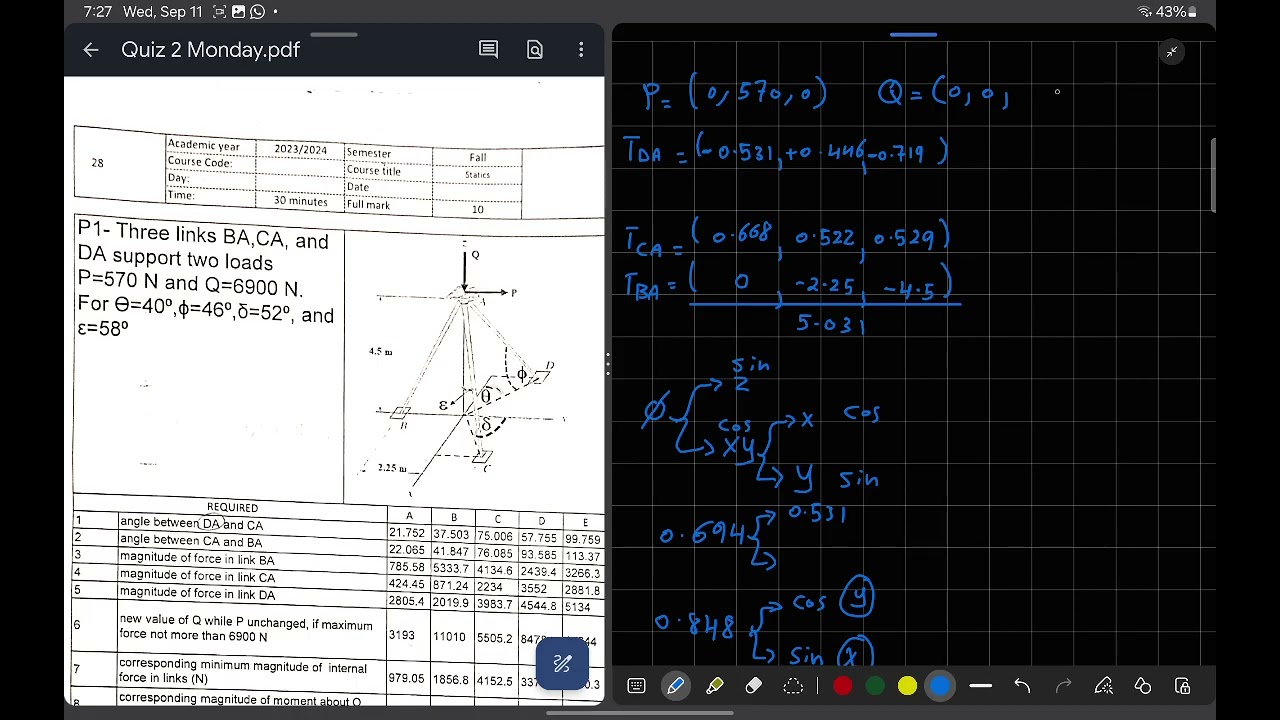 7:27 Wed, Sep 11
43%
Quiz 2 Monday.pdf
28
Academic year 2023/2024 Semester Fall
Course Code: Course title Statics
Day: Date
Time: 30 minutes Full mark 10
P1- Three links BA,CA, and
DA support two loads
P=570 N and Q=6900 N.
For Θ=40º,ϕ=46º,δ=52º, and
ε=58º
Q
P
4.5 m
D
ϕ
ε
θ
B
δ
C
2.25 m
REQUIRED A B C D E
1 angle between DA and CA 21.752 37.503 75.006 57.755 99.759
2 angle between CA and BA 22.065 41.847 76.085 93.585 113.37
3 magnitude of force in link BA 785.58 5333.7 4134.6 2439.4 3266.3
4 magnitude of force in link CA 424.45 871.24 2234 3552 2881.8
5 magnitude of force in link DA 2805.4 2019.9 3983.7 4544.8 5134
6 new value of Q while P unchanged, if maximum
force not more than 6900 N 3193 11010 5505.2
7 corresponding minimum magnitude of internal
force in links (N) 979.05 1856.8 4152.5
corresponding magnitude of moment about O
P= (0,570,0) Q=(0,0,
TDA = (-0.531,+0.446,-0.719)
TCA = (0.668, 0.522, 0.529)
TBA = (0, -2.25, -4.5)
5.031
sin
Z
ϕ
cos
XY
x cos
y sin
0.694
0.531
0.848
cos y
sin x